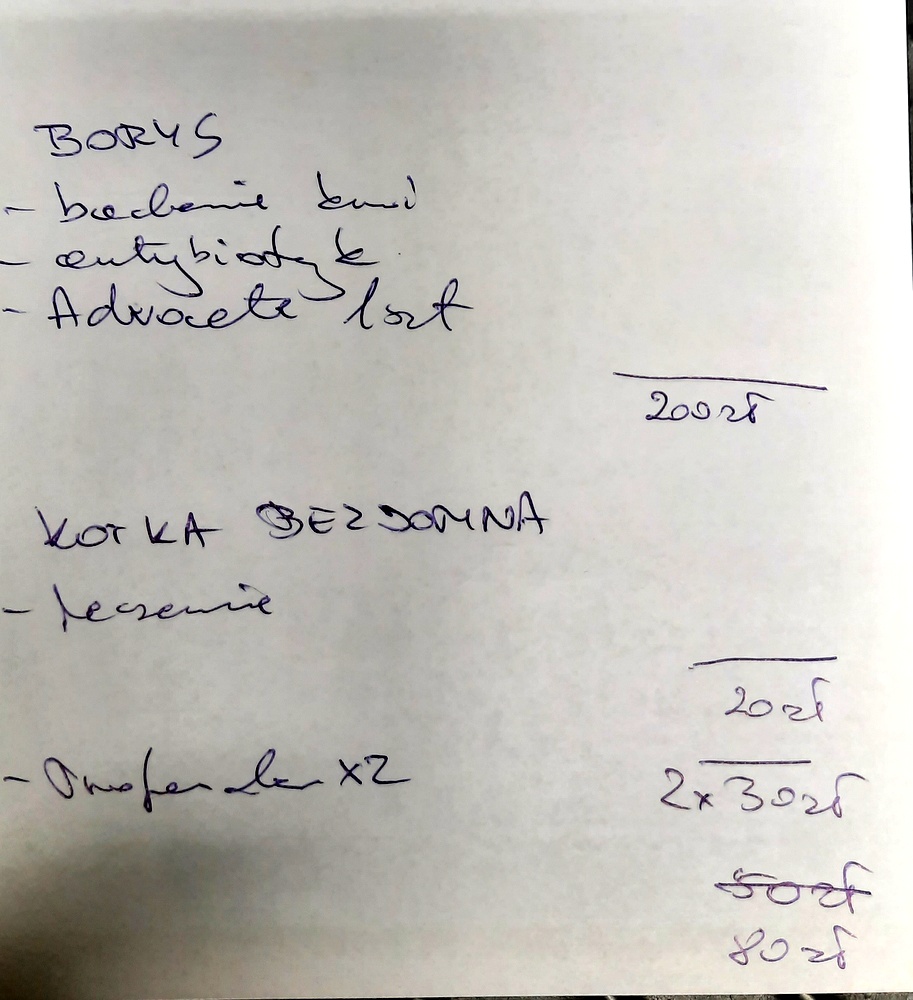 BORYS
- badanie krwi
- antybiotyk
- Advocate 1szt
200zł
KOTKA BEZDOMNA
- leczenie
20zł
- Profender x2
2x30zł
50zł
80zł